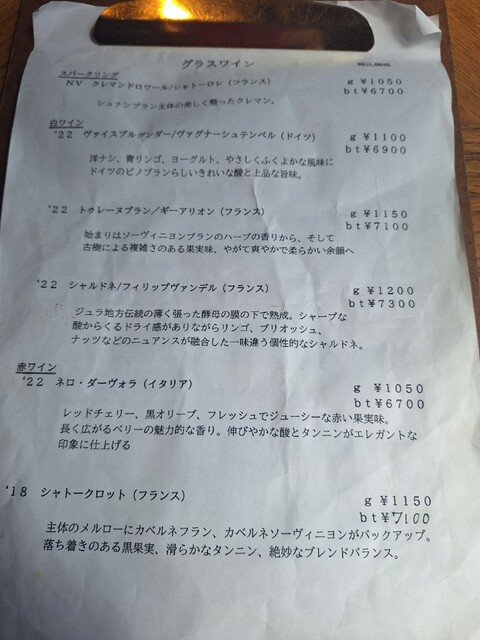 グラスワイン
税込価格
スパークリング
NV クレマンドロワール/シャトーロレ（フランス） g ¥1050
bt¥6700
シュナンブラン主体の美しく整ったクレマン。
白ワイン
'22 ヴァイスブルグンダー/ヴァグナーシュテンペル（ドイツ） g ¥1100
bt¥6900
洋ナシ、青リンゴ、ヨーグルト、やさしくふくよかな風味に
ドイツのピノブランらしいきれいな酸と上品な旨味。
'22 トゥレーヌブラン/ギーアリオン（フランス） g ¥1150
bt¥7100
始まりはソーヴィニヨンブランのハーブの香りから、そして
古樹による複雑さのある果実味、やがて爽やかで柔らかい余韻へ
'22 シャルドネ/フィリップヴァンデル（フランス） g ¥1200
bt¥7300
ジュラ地方伝統の薄く張った酵母の膜の下で熟成。シャープな
酸からくるドライ感がありながらリンゴ、ブリオッシュ、
ナッツなどのニュアンスが融合した一味違う個性的なシャルドネ。
赤ワイン
'22 ネロ・ダーヴォラ（イタリア） g ¥1050
bt¥6700
レッドチェリー、黒オリーブ、フレッシュでジューシーな赤い果実味。
長く広がるベリーの魅力的な香り。伸びやかな酸とタンニンがエレガントな
印象に仕上げる
'18 シャトークロット（フランス） g ¥1150
bt¥7100
主体のメルローにカベルネフラン、カベルネソーヴィニヨンがバックアップ。
落ち着きのある黒果実、滑らかなタンニン、絶妙なブレンドバランス。